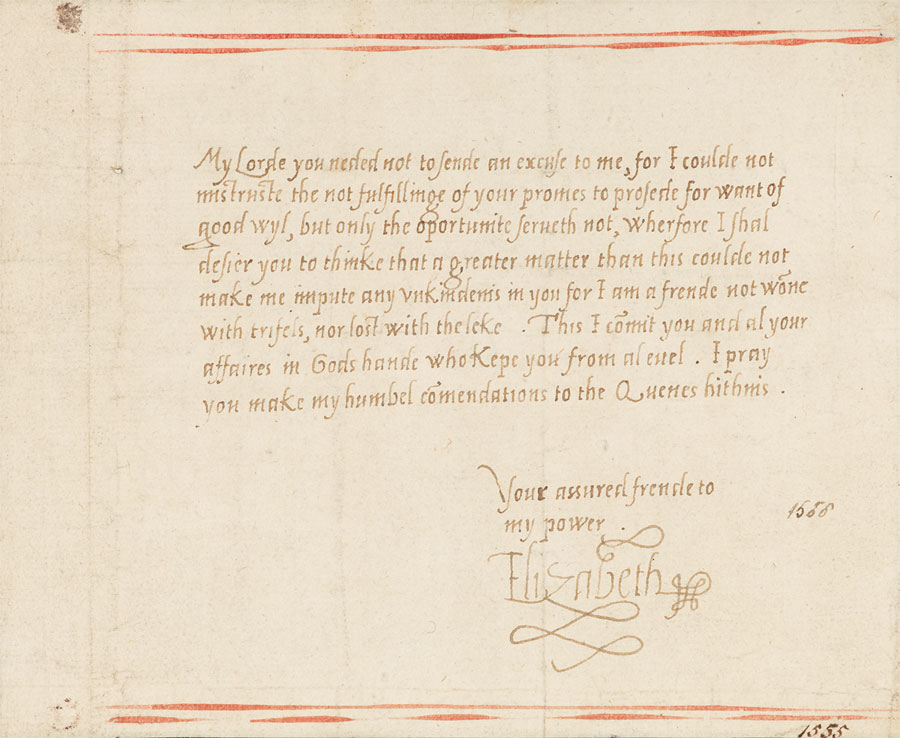 My Lorde you neded not to sende an excuse to me, for I coulde not
mistruste the not fulfillinge of your promes to prosede for want of
good wyl, but only the oportunite serueth not, wherfore I shal
desier you to thinke that a greater matter than this coulde not
make me impute any vnkindenis in you for I am a frende not wōne
with trifels, nor lost with the leke . This I cōmit you and al your
affaires in Gods hande who kepe you from al euel . I pray
you make my humbel cōmendations to the Quenes hithnis .
Your assured frende to
my power .
Elizabeth
1555